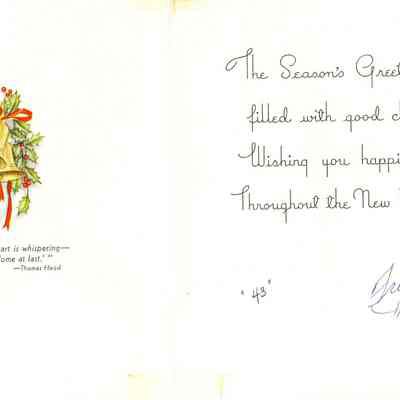 art is whispering—
ome at last.' "
—Thomas Hood
The Season's Greet
filled with good c
Wishing you happi
Throughout the New
" 43 "